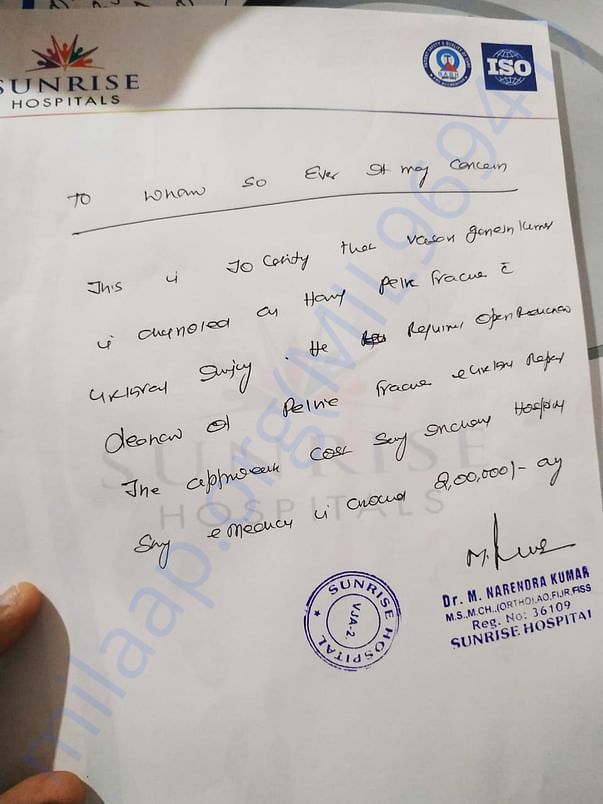 SUNRISE
HOSPITALS
ISO
To whom so Ever It may Concern
This is To Certify that
is diagnosed as Having Pelvic fracture c̄
urethral Injury. He Requires Open Reduction
of Pelvic fracture & urethral Repair
The approximate cost Stay Including Hospital
Stay & Medicines is around 2,00,000/-
SUNRISE HOSPITAL
VJA-2.
Dr. M. NARENDRA KUMAR
M.S.,M.CH.,(ORTHO),AO,FIJR,FISS
Reg. No: 36109
SUNRISE HOSPITAL
SUNRISE
HOSPITALS
milaap.org(MIL96941